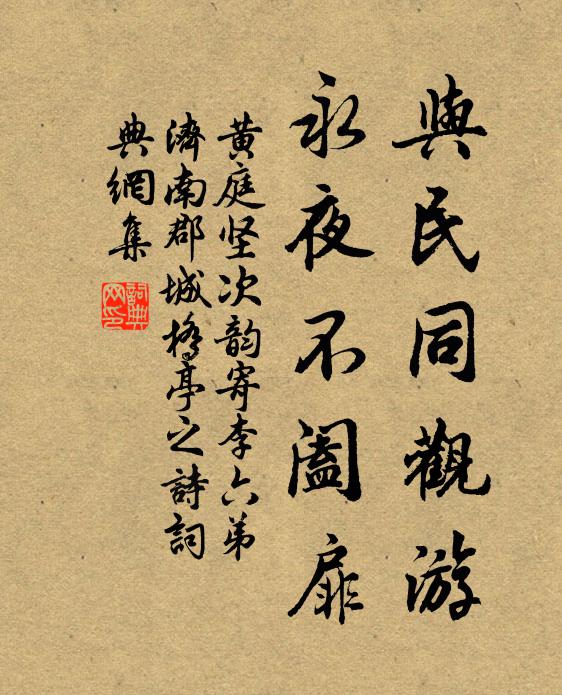 與民同觀游
永夜不闔扉
黄庭坚次韵寄李六弟
濟南郡城橋亭之詩詞
典網集
詞典網印